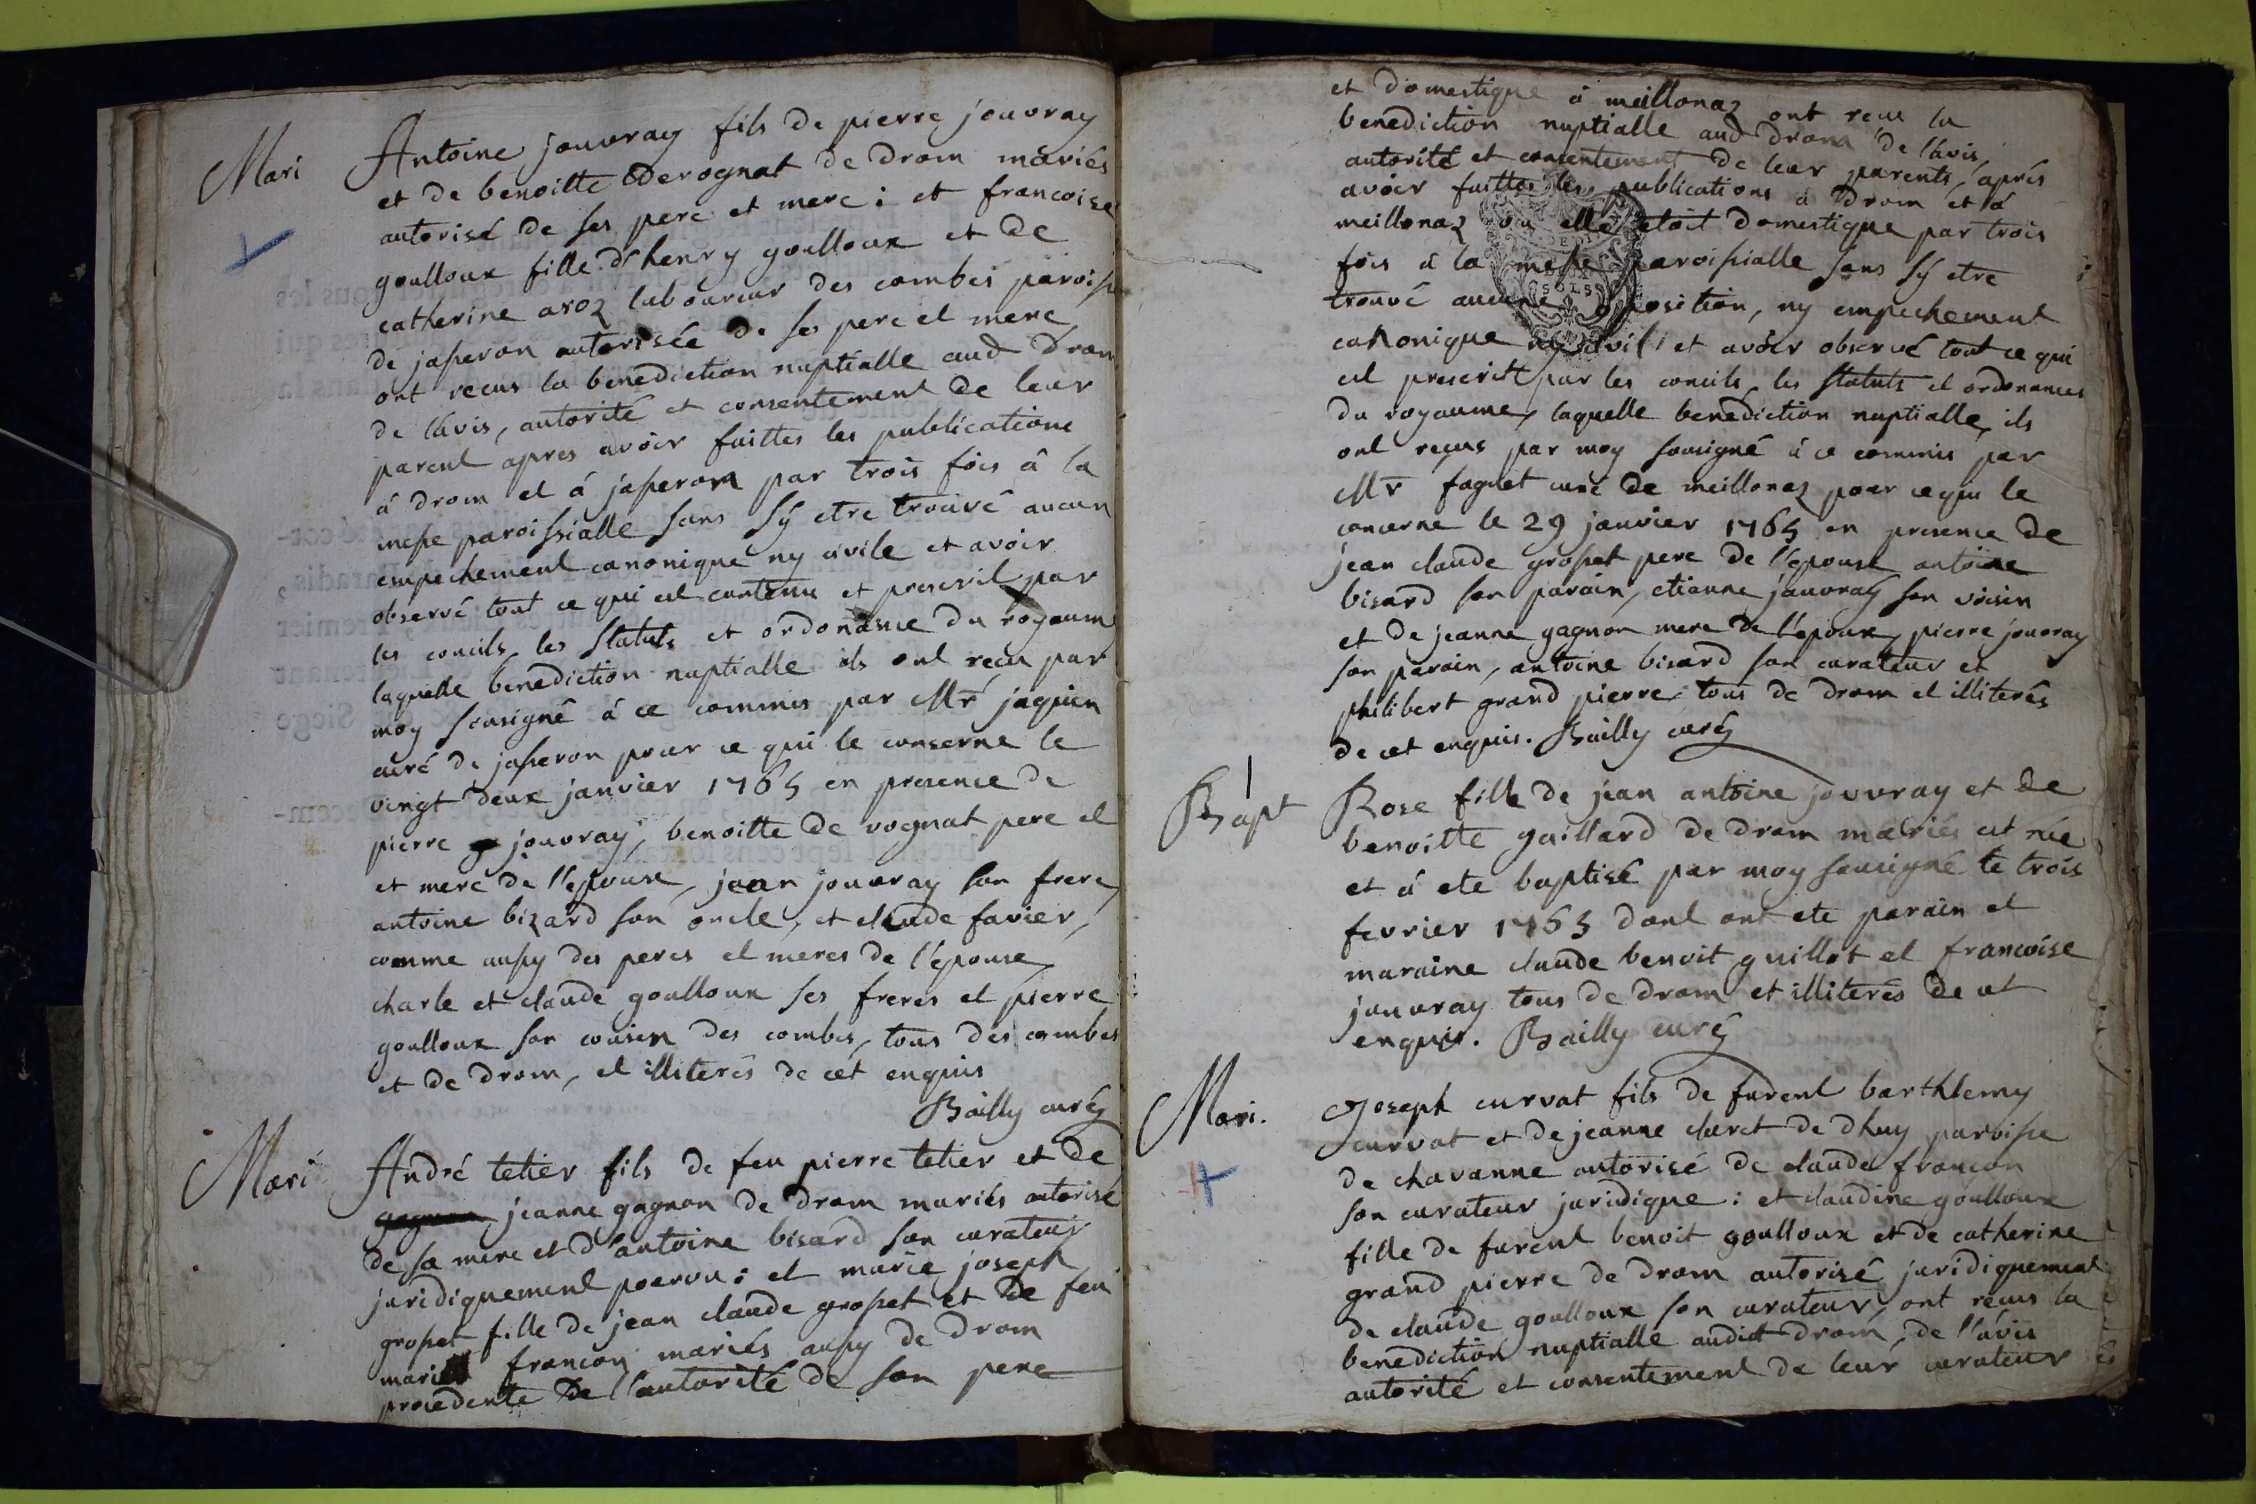 Mari
Antoine jouvray fils de pierre jouvray
et de benoitte derognat de drom mariés
autorisé de ses pere et mere ; et francoise
goulloux fille d'henry goulloux et de
catherine aroz laboureur des combes paroisse
de jasseron autorisée de ses pere et mere
ont recus la benediction nuptialle aud drom
de l'avis, autorité et consentement de leur
parent apres avoir faittes les publications
á drom et á jasseron par trois fois á la
messe paroissialle sans s'y etre trouvé aucun
empechement canonique ny civile et avoir
observé tout ce qui est contenu et prescrit par
les concils, les statuts et ordonance du royaume
laquelle benediction nuptialle ils ont recu par
moy sousigné á ce commis par Mr jaquien
curé de jasseron pour ce qui le conserne le
vingt deux janvier 1765 en presence de
pierre jouvray, benoitte de rognat pere et
et mere de l'epoux, jean jouvray son frere
antoine bizard son oncle, et claude favier,
comme aussy des peres et meres de l'épouse
charle et claude goulloux ses freres et pierre
goulloux son cousin des combes, tous des combes
et de drom, et illiterés de cet enquis
Bailly curé
Mari
André tetier fils de feu pierre tetier et de
gagnon jeanne gagnon de drom mariés autorisé
de sa mere et d'antoine bisard son curateur
juridiquement poervu ; et marie joseph
grosset fille de jean claude grosset et de feu
marie francon mariés aussy de drom
procedente de l'autorité de son pere
et domestique á meillonaz ont recu la
benediction nuptialle aud drom de l'avis,
autorité et consentement de leur parents, aprés
avoir faittes les publications á drom et á
meillonaz ou elle etoit domestique par trois
fois á la messe paroissialle sans s'y etre
trouvé aucune oposition, ny empechement
canonique ny civil, et avoir observé tout ce qui
est prescrit par les concils, les statuts et ordonances
du royaume, laquelle benediction nuptialle, ils
ont reçus par moy sousigné á ce commis par
Mr faguet curé de meillonaz pour ce qui le
concerne le 29 janvier 1765 en presence de
jean claude grosset pere de l'epouse antoine
bisard son parain, etienne jauvray son voisin
et de jeanne gagnon mere de l'epoux, pierre jouvray
son parain, antoine bisard son curateur et
philibert grand pierre, tous de drom et illiterés
de cet enquis. Bailly curé
Bapt
Rose fille de jean antoine jouvray et de
benoitte gaillard de drom mariés est née
et á ete baptisé par moy sousigné le trois
fevrier 1765 dont ont ete parain et
maraine claude benoit guillot et francoise
jouvray tous de drom et illiterés de cet
enquis. Bailly curé
Mari.
Joseph curvat fils de furent barthlemy
curvat et de jeanne claret de dhuy paroisse
de chavanne autorisé de claude françon
son curateur juridique : et claudine goulloux
fille de furent benoit goulloux et de catherine
grand pierre de drom autorisé juridiquement
de claude goulloux son curateur, ont recus la
benediction nuptialle audict drom, de l'avis
autorité et consentement de leur curateur